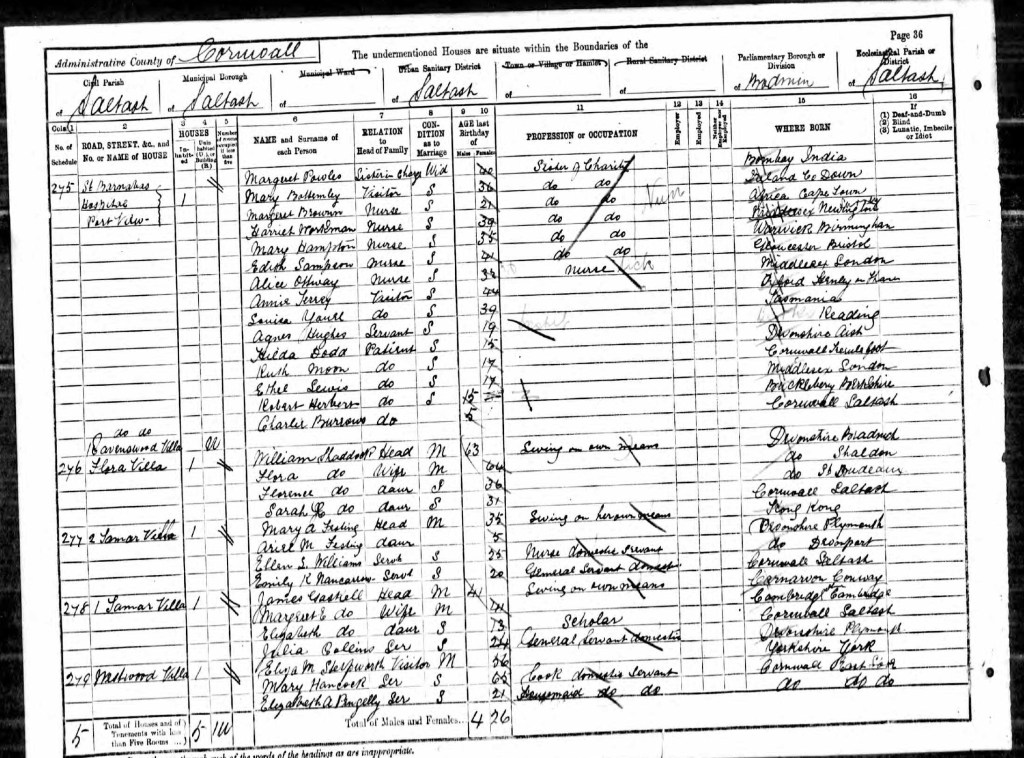 Page 36
Administrative County of Cornwall The undermentioned Houses are situate within the Boundaries of the
Civil Parish Municipal Borough Municipal Ward Urban Sanitary District Town or Village or Hamlet Rural Sanitary District Parliamentary Borough or Division Ecclesiastical Parish or District
of Saltash of Saltash of of Saltash of of of Bodmin of Saltash
Cols. 1 2 3 4 5 6 7 8 9 10 11 12 13 14 15 16
No. of Schedule ROAD, STREET, &c., and No. or NAME of HOUSE HOUSES In-habited Uninhabited (U.) or Building (B.) Number of rooms occupied if less than five NAME and Surname of each Person RELATION to Head of Family CONDITION as to Marriage AGE last Birthday of Males Females PROFESSION or OCCUPATION Employer Employed Neither WHERE BORN (1) Deaf-and-Dumb (2) Blind (3) Lunatic, Imbecile or Idiot
275 St Barnabas Margaret Powles Sister in Charge Wid 40 Sister of Charity Bombay India
Hospital 1 Mary Bottomley Visitor S 36 do do Ireland Co Down
Port View Margaret Brown Nurse S 21 do do Nun Africa Cape Town
Harriet Workman Nurse S 39 do do Middlesex
Mary Hampton Nurse S 35 do do Warwick Birmingham
Edith Sampson Nurse S 41 do do Gloucester Bristol
Alice Ottway Nurse S 32 Nurse Sick Middlesex London
Annie Terrey Visitor S 44 Oxford Henley on Thames
Louisa Youll do S 39 Tasmania
Agnes Hughes Servant S 19 Reading
Hilda Dodd Patient S 15 Devonshire
Ruth Moon do S 17 Cornwall
Ethel Lewis do S 17 Middlesex London
Robert Herbert do S 15 Bucklebury Berkshire
Charles Burrows do 5 Cornwall Saltash
do do
Ravenswood Villa U
276 Flora Villa 1 William Shaddock Head M 63 Living on own means Devonshire Bradninch
Flora do Wife M 64 do Shaldon
Florence do daur S 36 do St Budeaux
Sarah do daur S 31 Cornwall Saltash
277 2 Tamar Villa 1 Mary A Festing Head M 35 Living on her own means Hong Kong
M Festing daur 5 Devonshire Plymouth
Ellen S. Williams Servt S 25 Nurse domestic servant do Devonport
Emily K Nancarrow Servt S 20 General Servant domestic Cornwall Saltash
278 1 Tamar Villa 1 James Gaskell Head M 41 Living on own means Carnarvon Conway
Margaret E do Wife M 41 Cambridge
Elizabeth do daur S 13 Scholar Cornwall Saltash
Julia Collins Ser S 24 General Servant domestic Devonshire Plymouth
279 Westwood Villa 1 Eliza M Visitor M 56 Yorkshire York
Mary Hancock Ser S 65 Cook domestic Servant Cornwall East Looe
Elizabeth A Pengelly Ser S 21 Housemaid do do do do do
5 Total of Houses and of Tenements with less than Five Rooms 5 1U Total of Males and Females.. 4 26